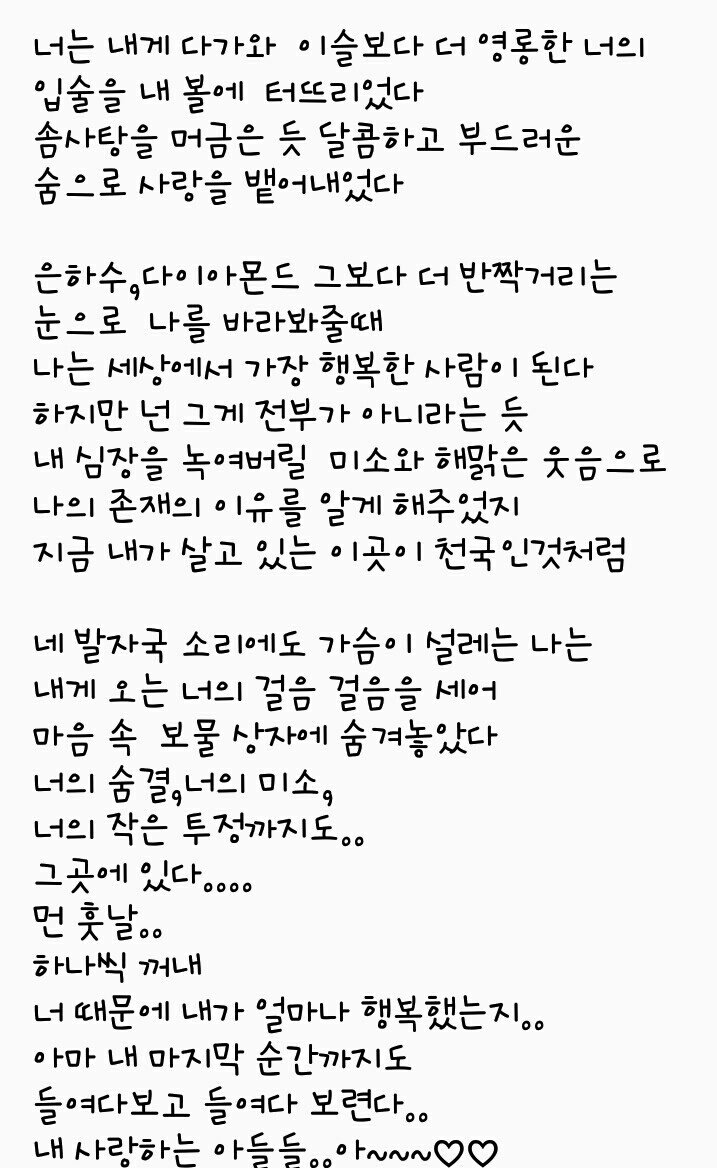 너는 내게 다가와 이슬보다 더 영롱한 너의
입술을 내 볼에 터뜨리었다
솜사탕을 머금은 듯 달콤하고 부드러운
숨으로 사랑을 뱉어내었다
은하수,다이아몬드 그보다 더 반짝거리는
눈으로 나를 바라봐줄때
나는 세상에서 가장 행복한 사람이 된다
하지만 넌 그게 전부가 아니라는 듯
내 심장을 녹여버릴 미소와 해맑은 웃음으로
나의 존재의 이유를 알게 해주었지
지금 내가 살고 있는 이곳이 천국인것처럼
네 발자국 소리에도 가슴이 설레는 나는
내게 오는 너의 걸음 걸음을 세어
마음 속 보물 상자에 숨겨놓았다
너의 숨결,너의 미소,
너의 작은 투정까지도..
그곳에 있다....
먼 훗날..
하나씩 꺼내
너 때문에 내가 얼마나 행복했는지..
아마 내 마지막 순간까지도
들여다보고 들여다 보련다..
내 사랑하는 아들들..아~~~♡♡